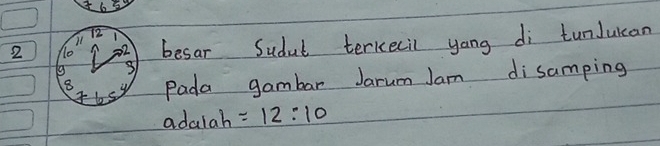 7 6 5
2
12 1 2 3 4 5 6 7 8 9 10 11
besar Sudut terkecil yang di tunJukan
Pada gambar Jarum Jam di samping
adalah = 12:10